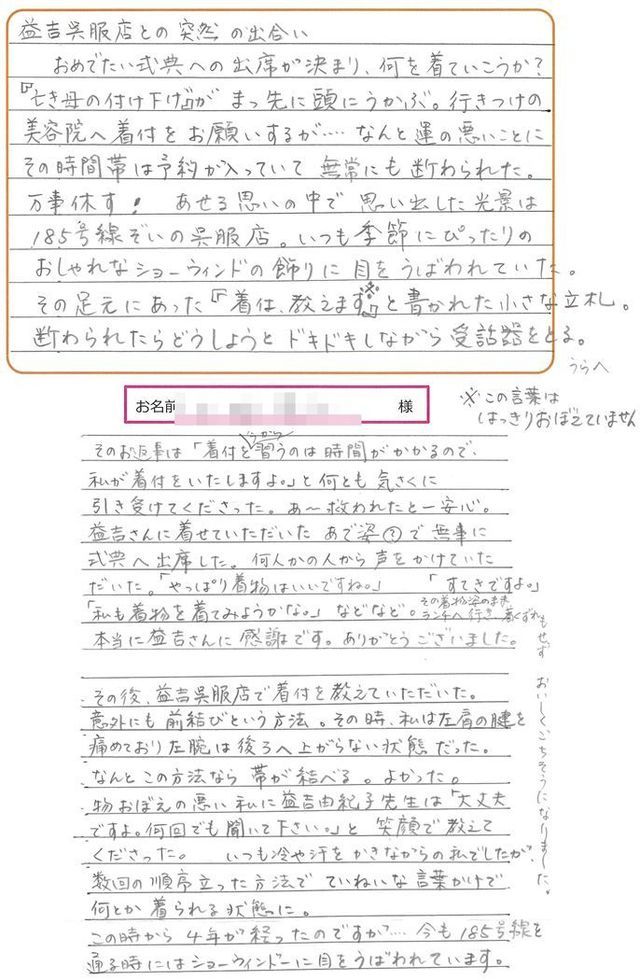 益吉呉服店との突然の出合い
おめでたい式典への出席が決まり、何を着ていこうか?
『亡き母の付け下げ』が まっ先に頭にうかぶ。行きつけの
美容院へ着付をお願いするが…. なんと運の悪いことに
その時間帯は予約が入っていて 無常にも断わられた。
万事休す! あせる思いの中で 思い出した光景は
185号線ぞいの呉服店。いつも季節にぴったりの
おしゃれなショーウィンドの飾りに目をうばわれていた。
その足元にあった『着付、教えます※』と書かれた小さな立札。
断わられたらどうしようと ドキドキしながら 受話器をとる。
うらへ
※この言葉は
はっきりおぼえていません
お名前 様
そのお返事は「着付を習うのは時間がかかるので、
私が着付をいたしますよ。」と何とも気さくに
引き受けてくださった。あ〜救われたと一安心。
益吉さんに着せていただいた あで姿?で無事に
式典へ出席した。何人かの人から声をかけていた
だいた。「やっぱり着物はいいですね。」 「すてきですよ。」
「私も着物を着てみようかな。」などなど。その着物姿のまま
ランチへ行き、着くずれもせず
おいしくごちそうになりました。
本当に益吉さんに感謝です。ありがとうございました。
その後、益吉呉服店で着付を教えていただいた。
意外にも前結びという方法。その時、私は左肩の腱を
痛めており左腕は後ろへ上がらない状態だった。
なんとこの方法なら帯が結べる。よかった。
物おぼえの悪い私に益吉由紀子先生は「大丈夫
ですよ。何回でも聞いて下さい。」と 笑顔で教えて
くださった。 いつも冷や汗をかきながらの私でしたが、
数回の順序立った方法で ていねいな言葉かけで
何とか着られる状態に。
この時から 4年が経ったのですが…. 今も185号線を
通る時にはショーウィンドーに目をうばわれています。